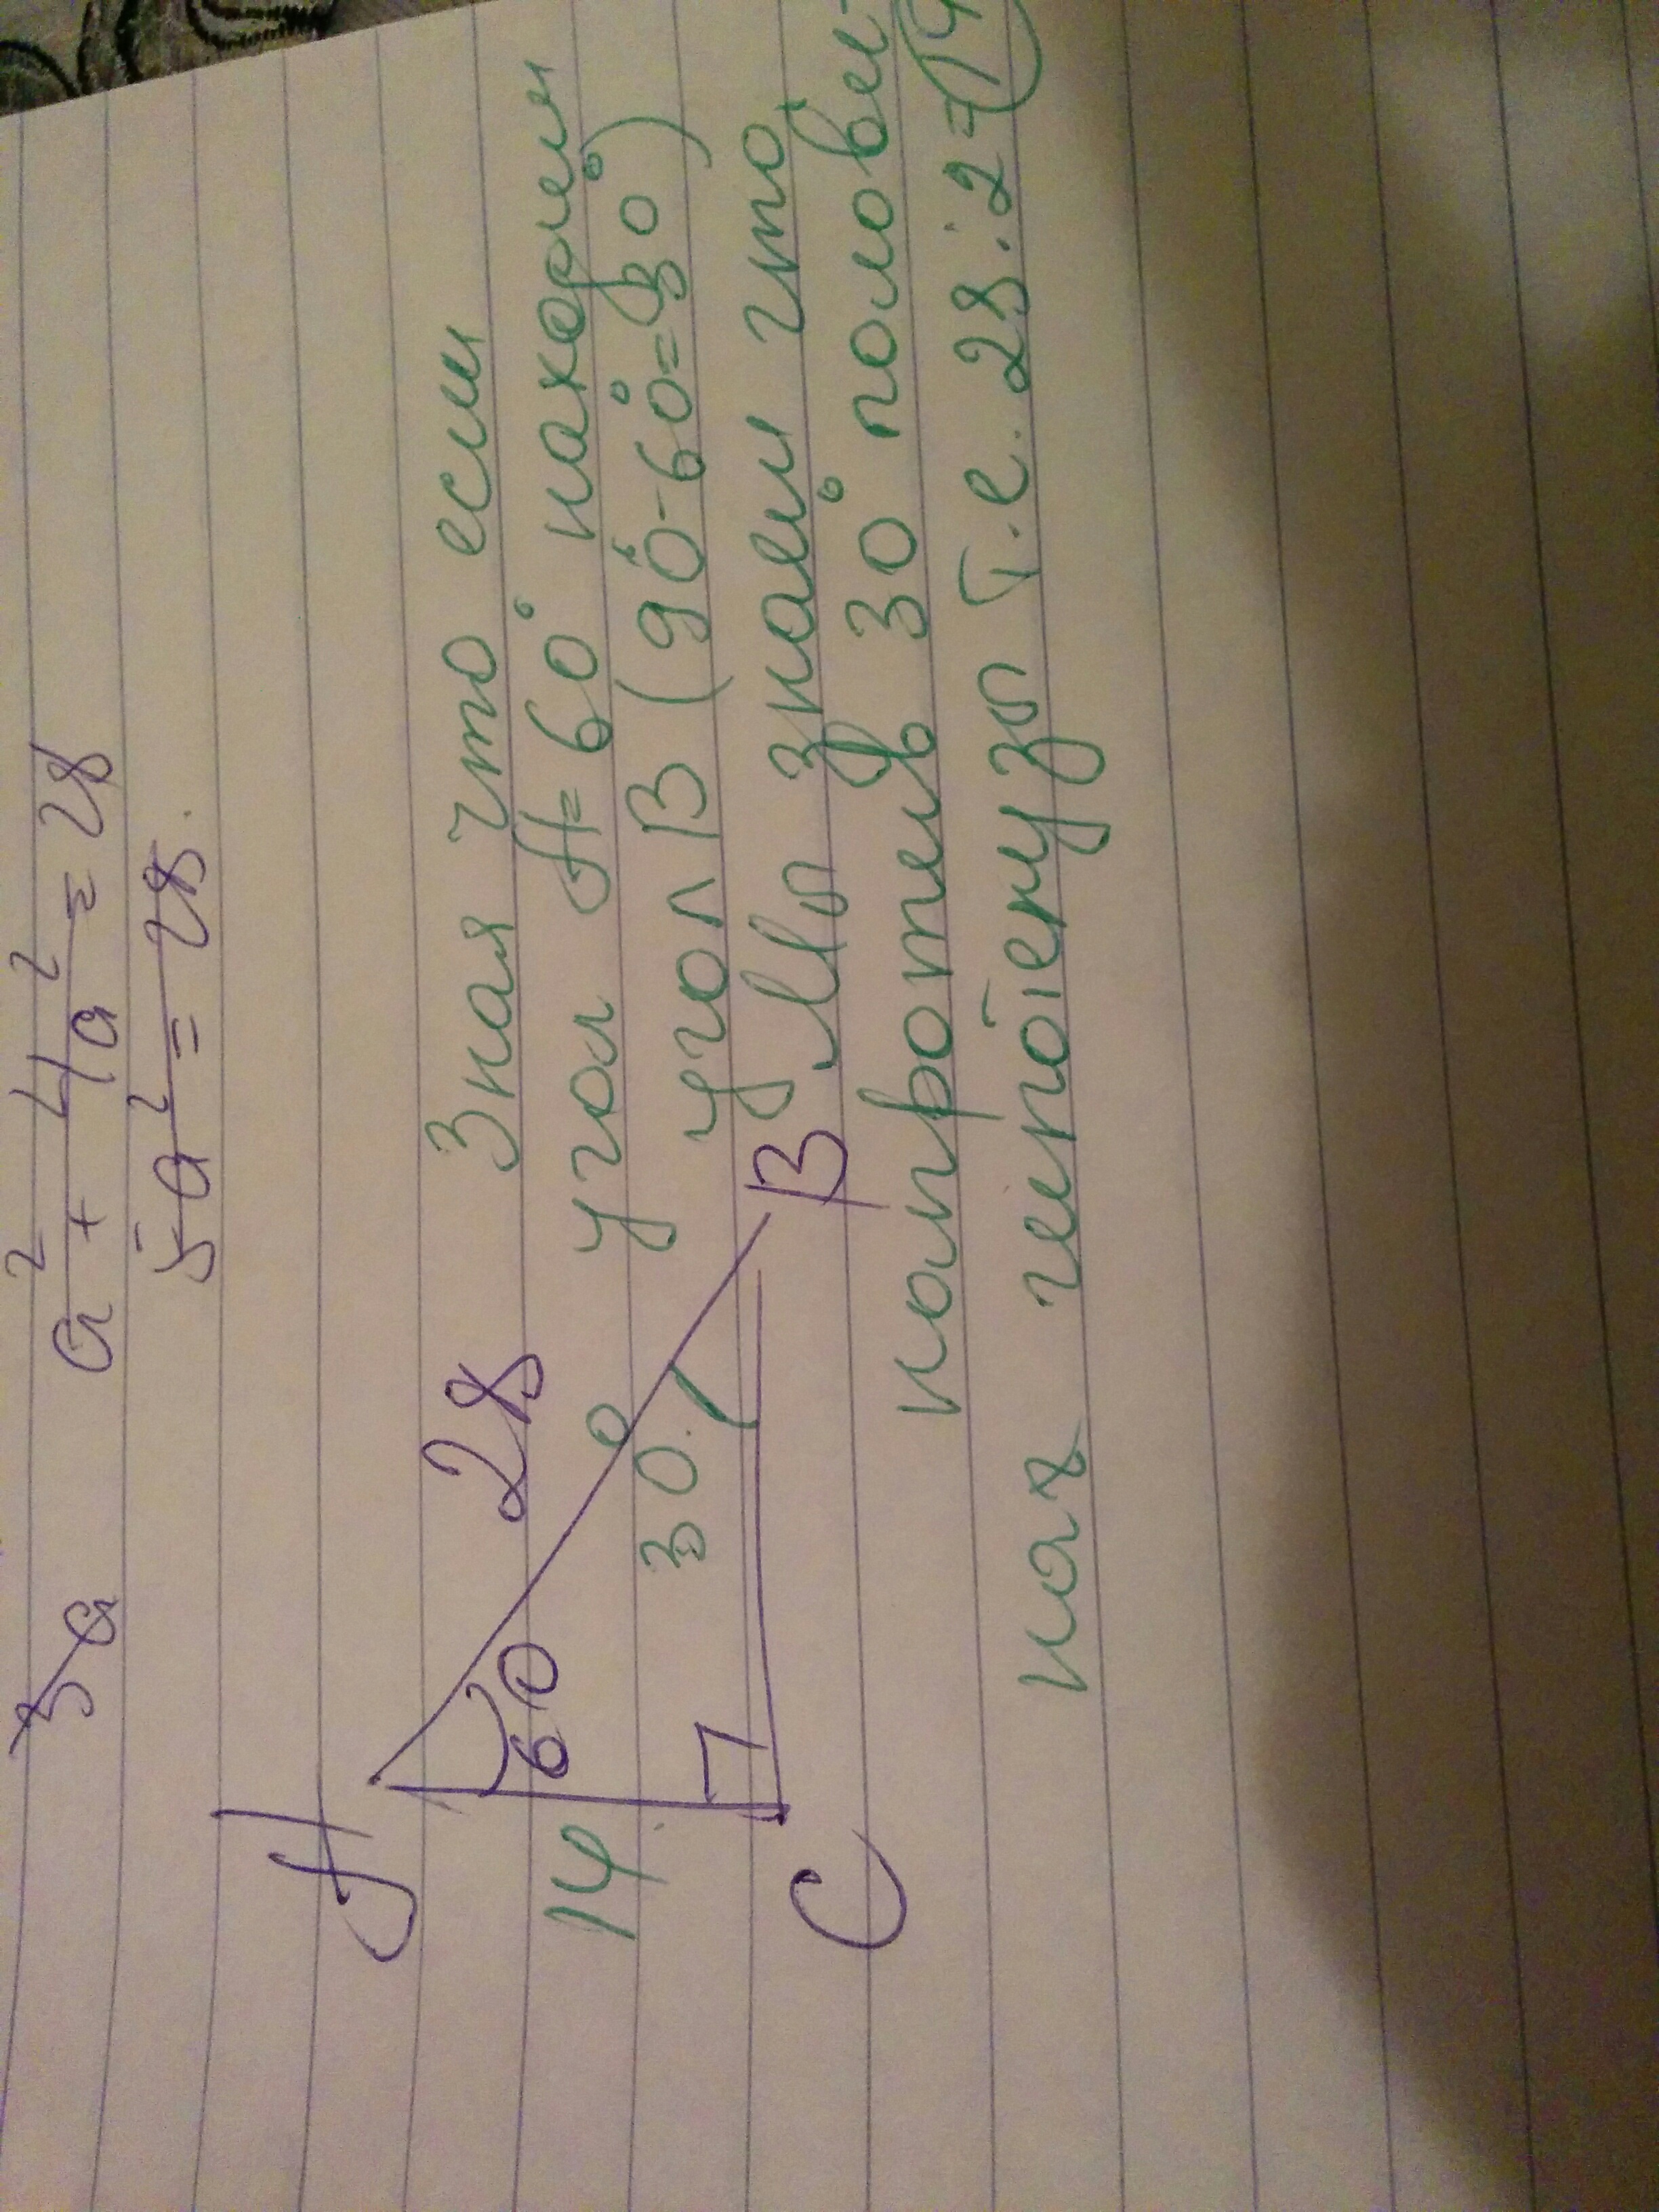 3a
a² + 4a² = 28
5a² = 28.
A
28
60
30°
14
C
B
Зная что если
угол A=60° находим
угол B (90°-60°=30°)
Мы знаем что,
напротив 30° половин-
ная гипотенузы т.е. 28:2=14